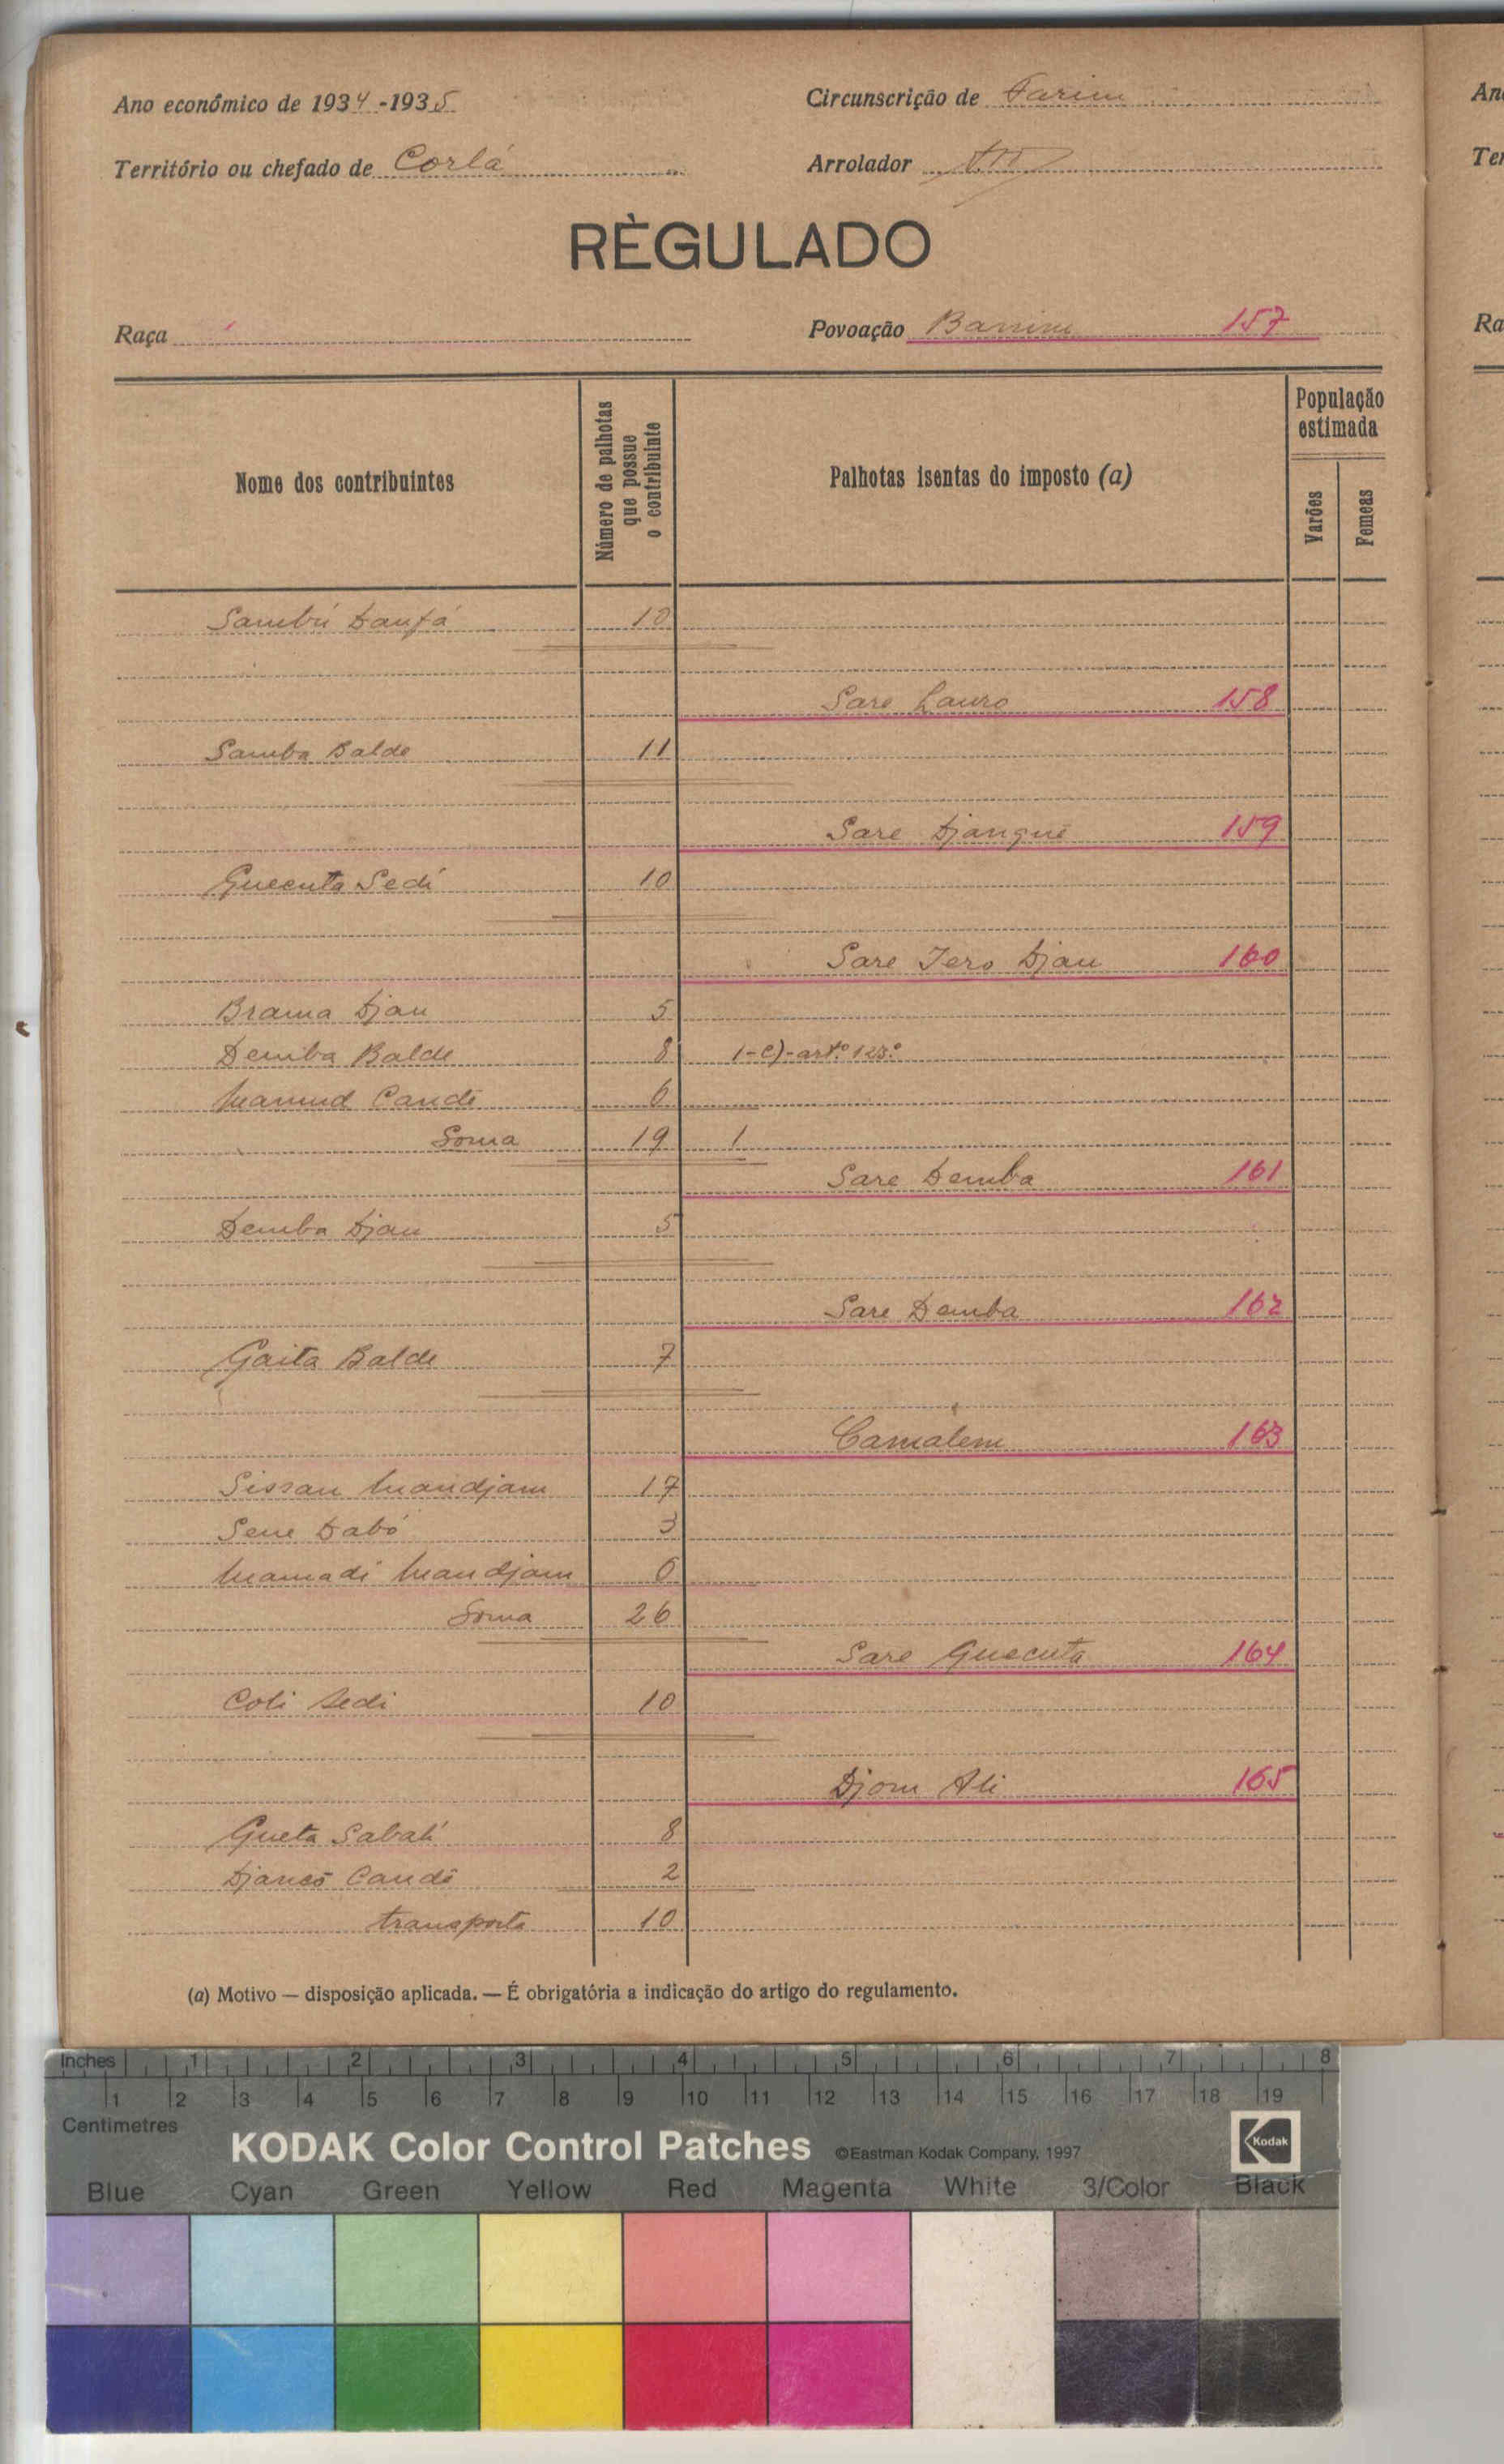 Ano económico de 1934-1935
Circunscrição de Farim
Território ou chefado de Corlá
Arrolador
RÈGULADO
Raça
Povoação 157
Nome dos contribuintes
Número de palhotas que possue o contribuinte
Palhotas isentas do imposto (a)
População estimada
Varões
Femeas
Sambú Danfá 10
Sare Lauro 158
Samba Balde 11
Sare Djangué 159
Quecuta Sedi 10
Sare Iero Djau 160
Brama Djau 5
Demba Balde 8 1-c)-artº. 123.º
Mamud Candé 6
Soma 19 1
Sare Demba 161
Demba Djau 5
Sare Demba 162
Gaita Balde 7
Camalem 163
Sissau Mandjam 17
Sene Dabó 3
Mamadi Mandjam 6
Soma 26
Sare Quecuta 164
Coli Sedi 10
Djom Ali 165
Queta Sabali 8
Djancó Candé 2
transporte 10
(a) Motivo — disposição aplicada. — É obrigatória a indicação do artigo do regulamento.
Inches 1 2 3 4 5 6 7 8
1 2 3 4 5 6 7 8 9 10 11 12 13 14 15 16 17 18 19
Centimetres
KODAK Color Control Patches ©Eastman Kodak Company, 1997 Kodak
Blue Cyan Green Yellow Red Magenta White 3/Color Black
An
Ter
Ra